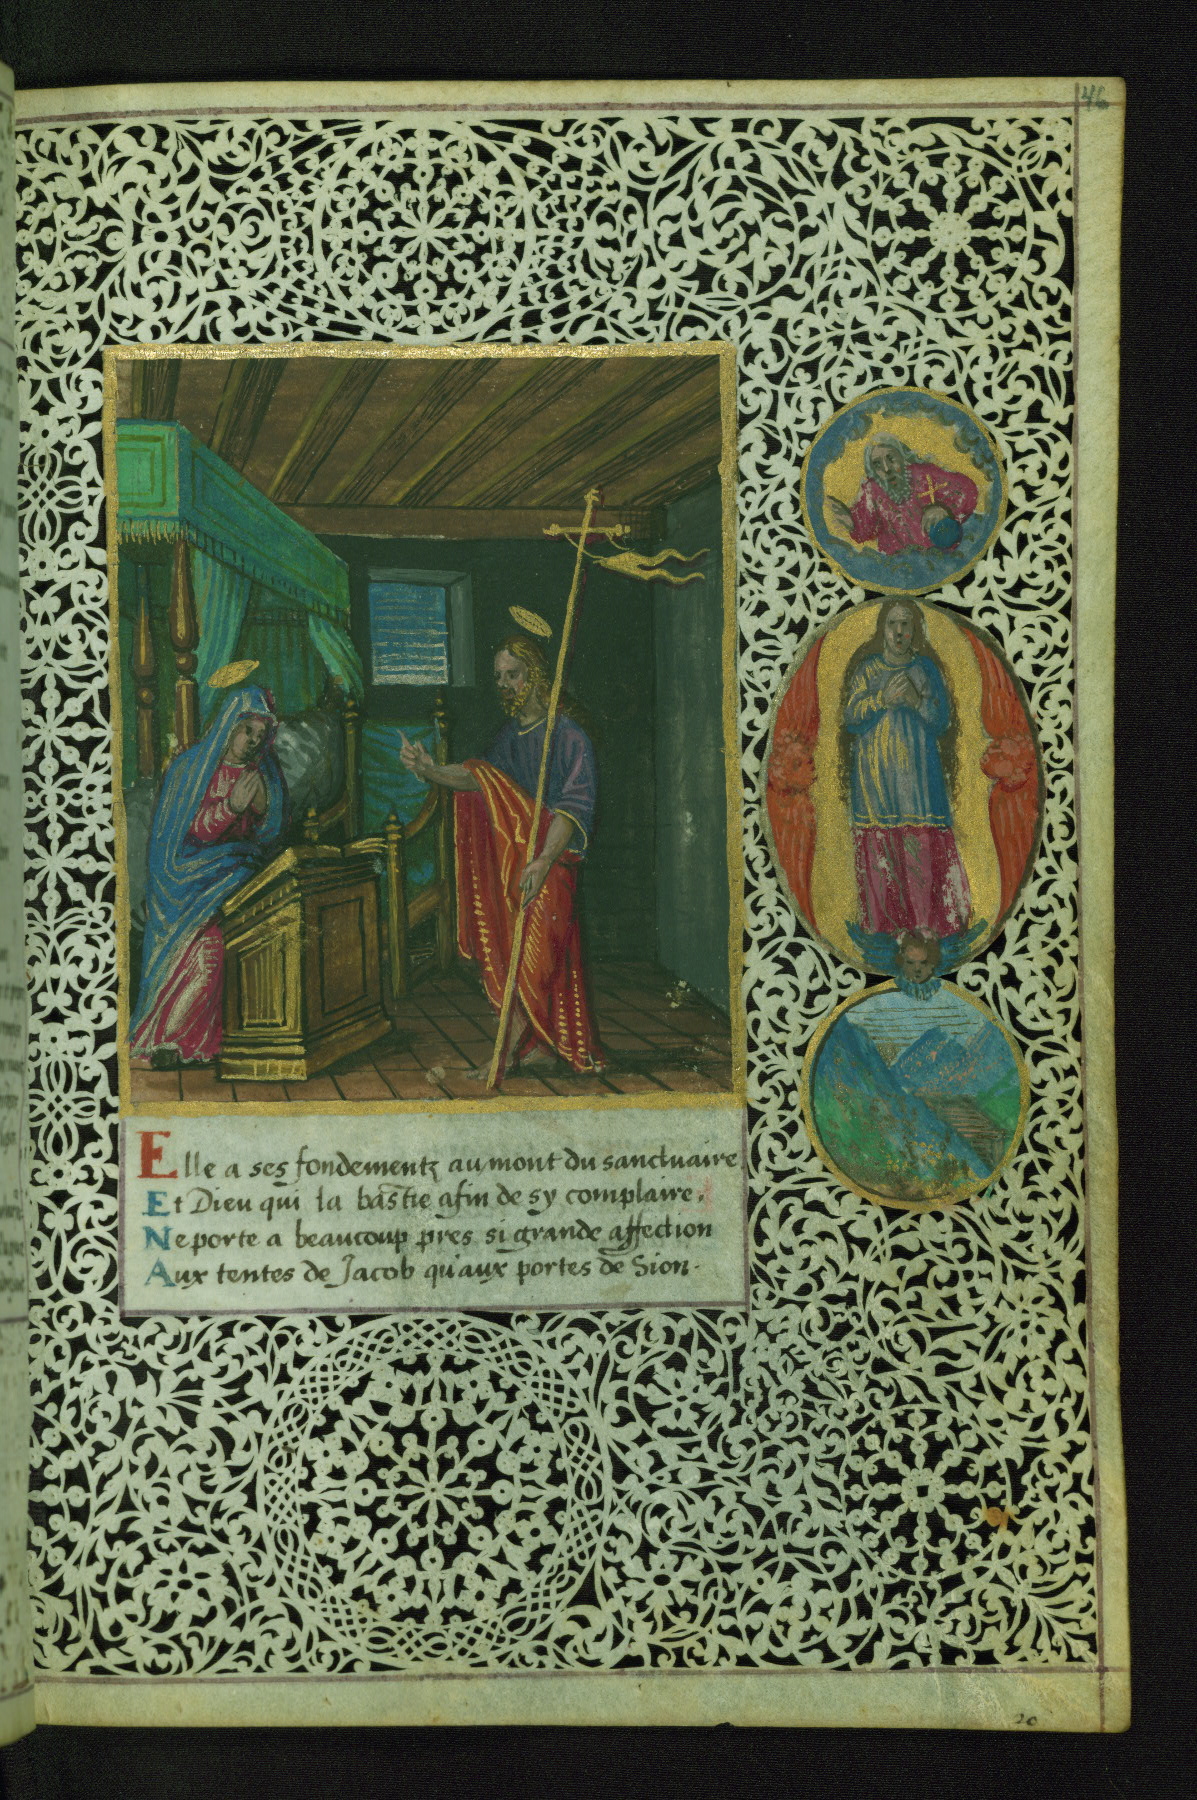 46
Elle a ses fondementz au mont du sanctuaire
Et Dieu qui la bastie afin de sy complaire.
Ne porte a beaucoup pres si grande affection
Aux tentes de Jacob qu'aux portes de Sion.
20